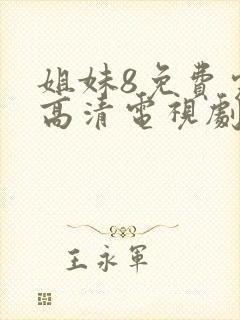 姐妹8免费
高清電視劇
王永軍